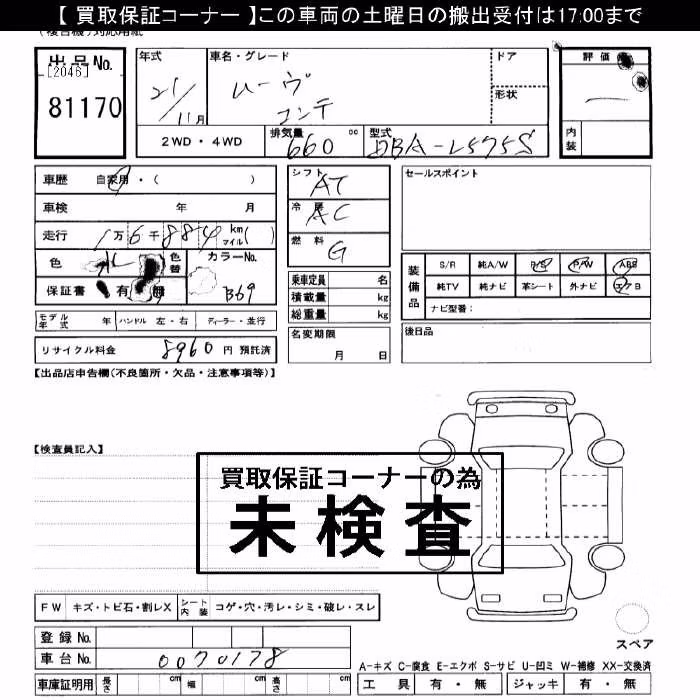 【 買取保証コーナー 】この車両の土曜日の搬出受付は17:00まで
出品No.
[2046]
81170
年式
21/11月
車名・グレード
ムーヴ
コンテ
ドア
形状
評価
内装
2WD・4WD
排気量
660 cc
型式
DBA-L575S
車歴 自家用・( )
車検 年 月
走行 1万6千884 km マイル( )
色
色替
カラーNo.
B69
保証書 有 無
シフト
AT
冷房
AC
燃料
G
セールスポイント
装備品
S/R 純A/W P/S P/W ABS
純TV 純ナビ 革シート 外ナビ エアB
ナビ型番:
乗車定員 名
積載量 kg
総重量 kg
モデル年式 年 ハンドル 左・右 ディーラー・並行
名変期限
月 日
後日品
リサイクル料金 8960 円 預託済
【出品店申告欄(不良箇所・欠品・注意事項等)】
【検査員記入】
買取保証コーナーの為
未検査
FW キズ・トビ石・割レX シート内装 コゲ・穴・汚レ・シミ・破レ・スレ
登録No.
車台No. 0070178
スペア
A-キズ C-腐食 E-エクボ S-サビ U-凹ミ W-補修 XX-交換済
車庫証明用 長さ cm 幅 cm 高さ cm
工具 有・無 ジャッキ 有・無